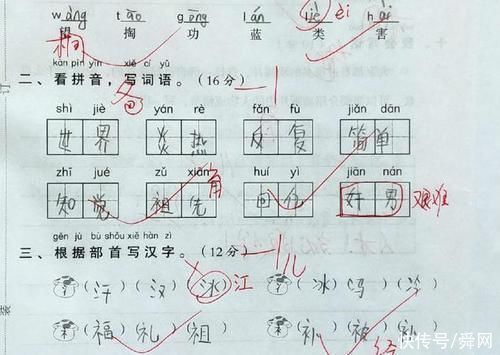 wàng tāo gōng lán liè ēi hài
望 掏 功 蓝 类 害
kàn pīn yīn xiě cí yǔ
二、看拼音，写词语。（16分） -1
shì jiè yán rè fǎn fù jiǎn dān
世 界 炎 热 反 复 简 单
zhī jué zǔ xiān huí yì jiān nán
知 觉 祖 先 回 忆 奸 男 艰难
gēn jù bù shǒu xiě hàn zì
三、根据部首写汉字。（12分） -1
（汗）（汉）（冰）江 （冰）（冯）（冷）
（福）（礼）（祖） （补）（被）
快传号/舜网